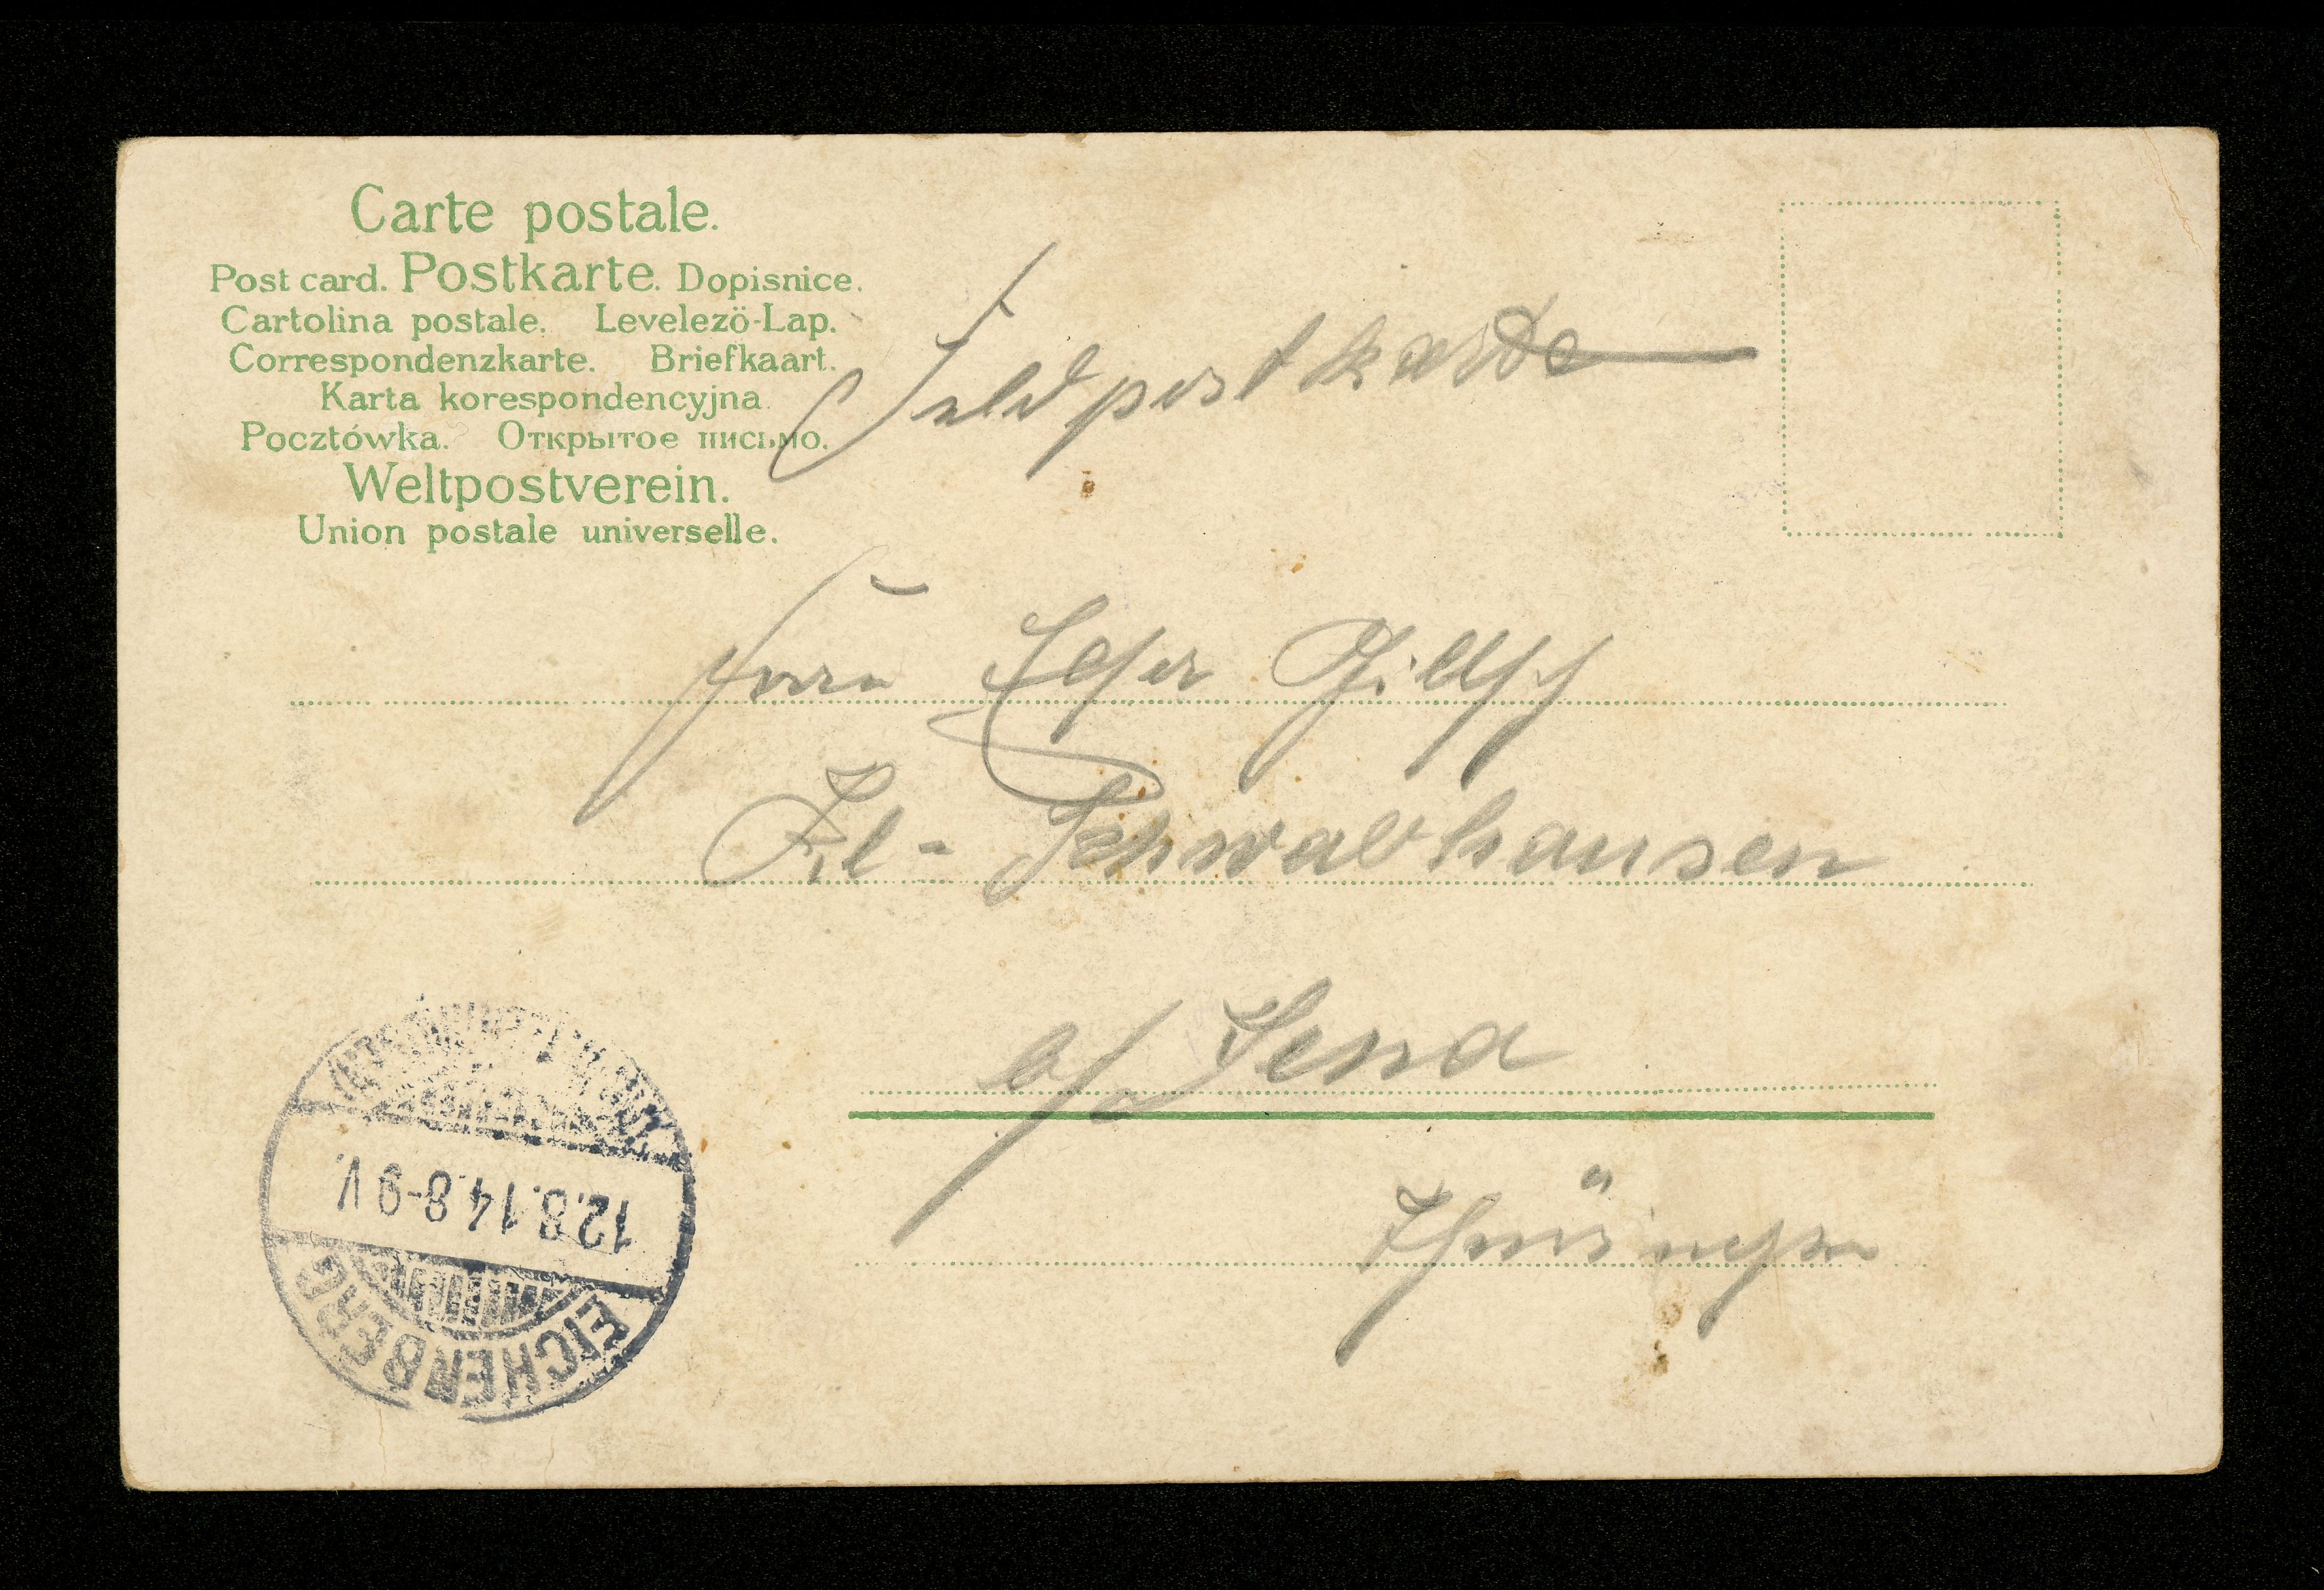 Carte postale.
Post card. Postkarte. Dopisnice.
Cartolina postale. Levelezö-Lap.
Correspondenzkarte. Briefkaart.
Karta korespondencyjna.
Pocztówka. Открытое письмо.
Weltpostverein.
Union postale universelle.
Feldpostkarte
Frau
Kl-Schwabhausen
b/ Jena
Thüringen
12.8.14.8-9V.
EICHENBERG